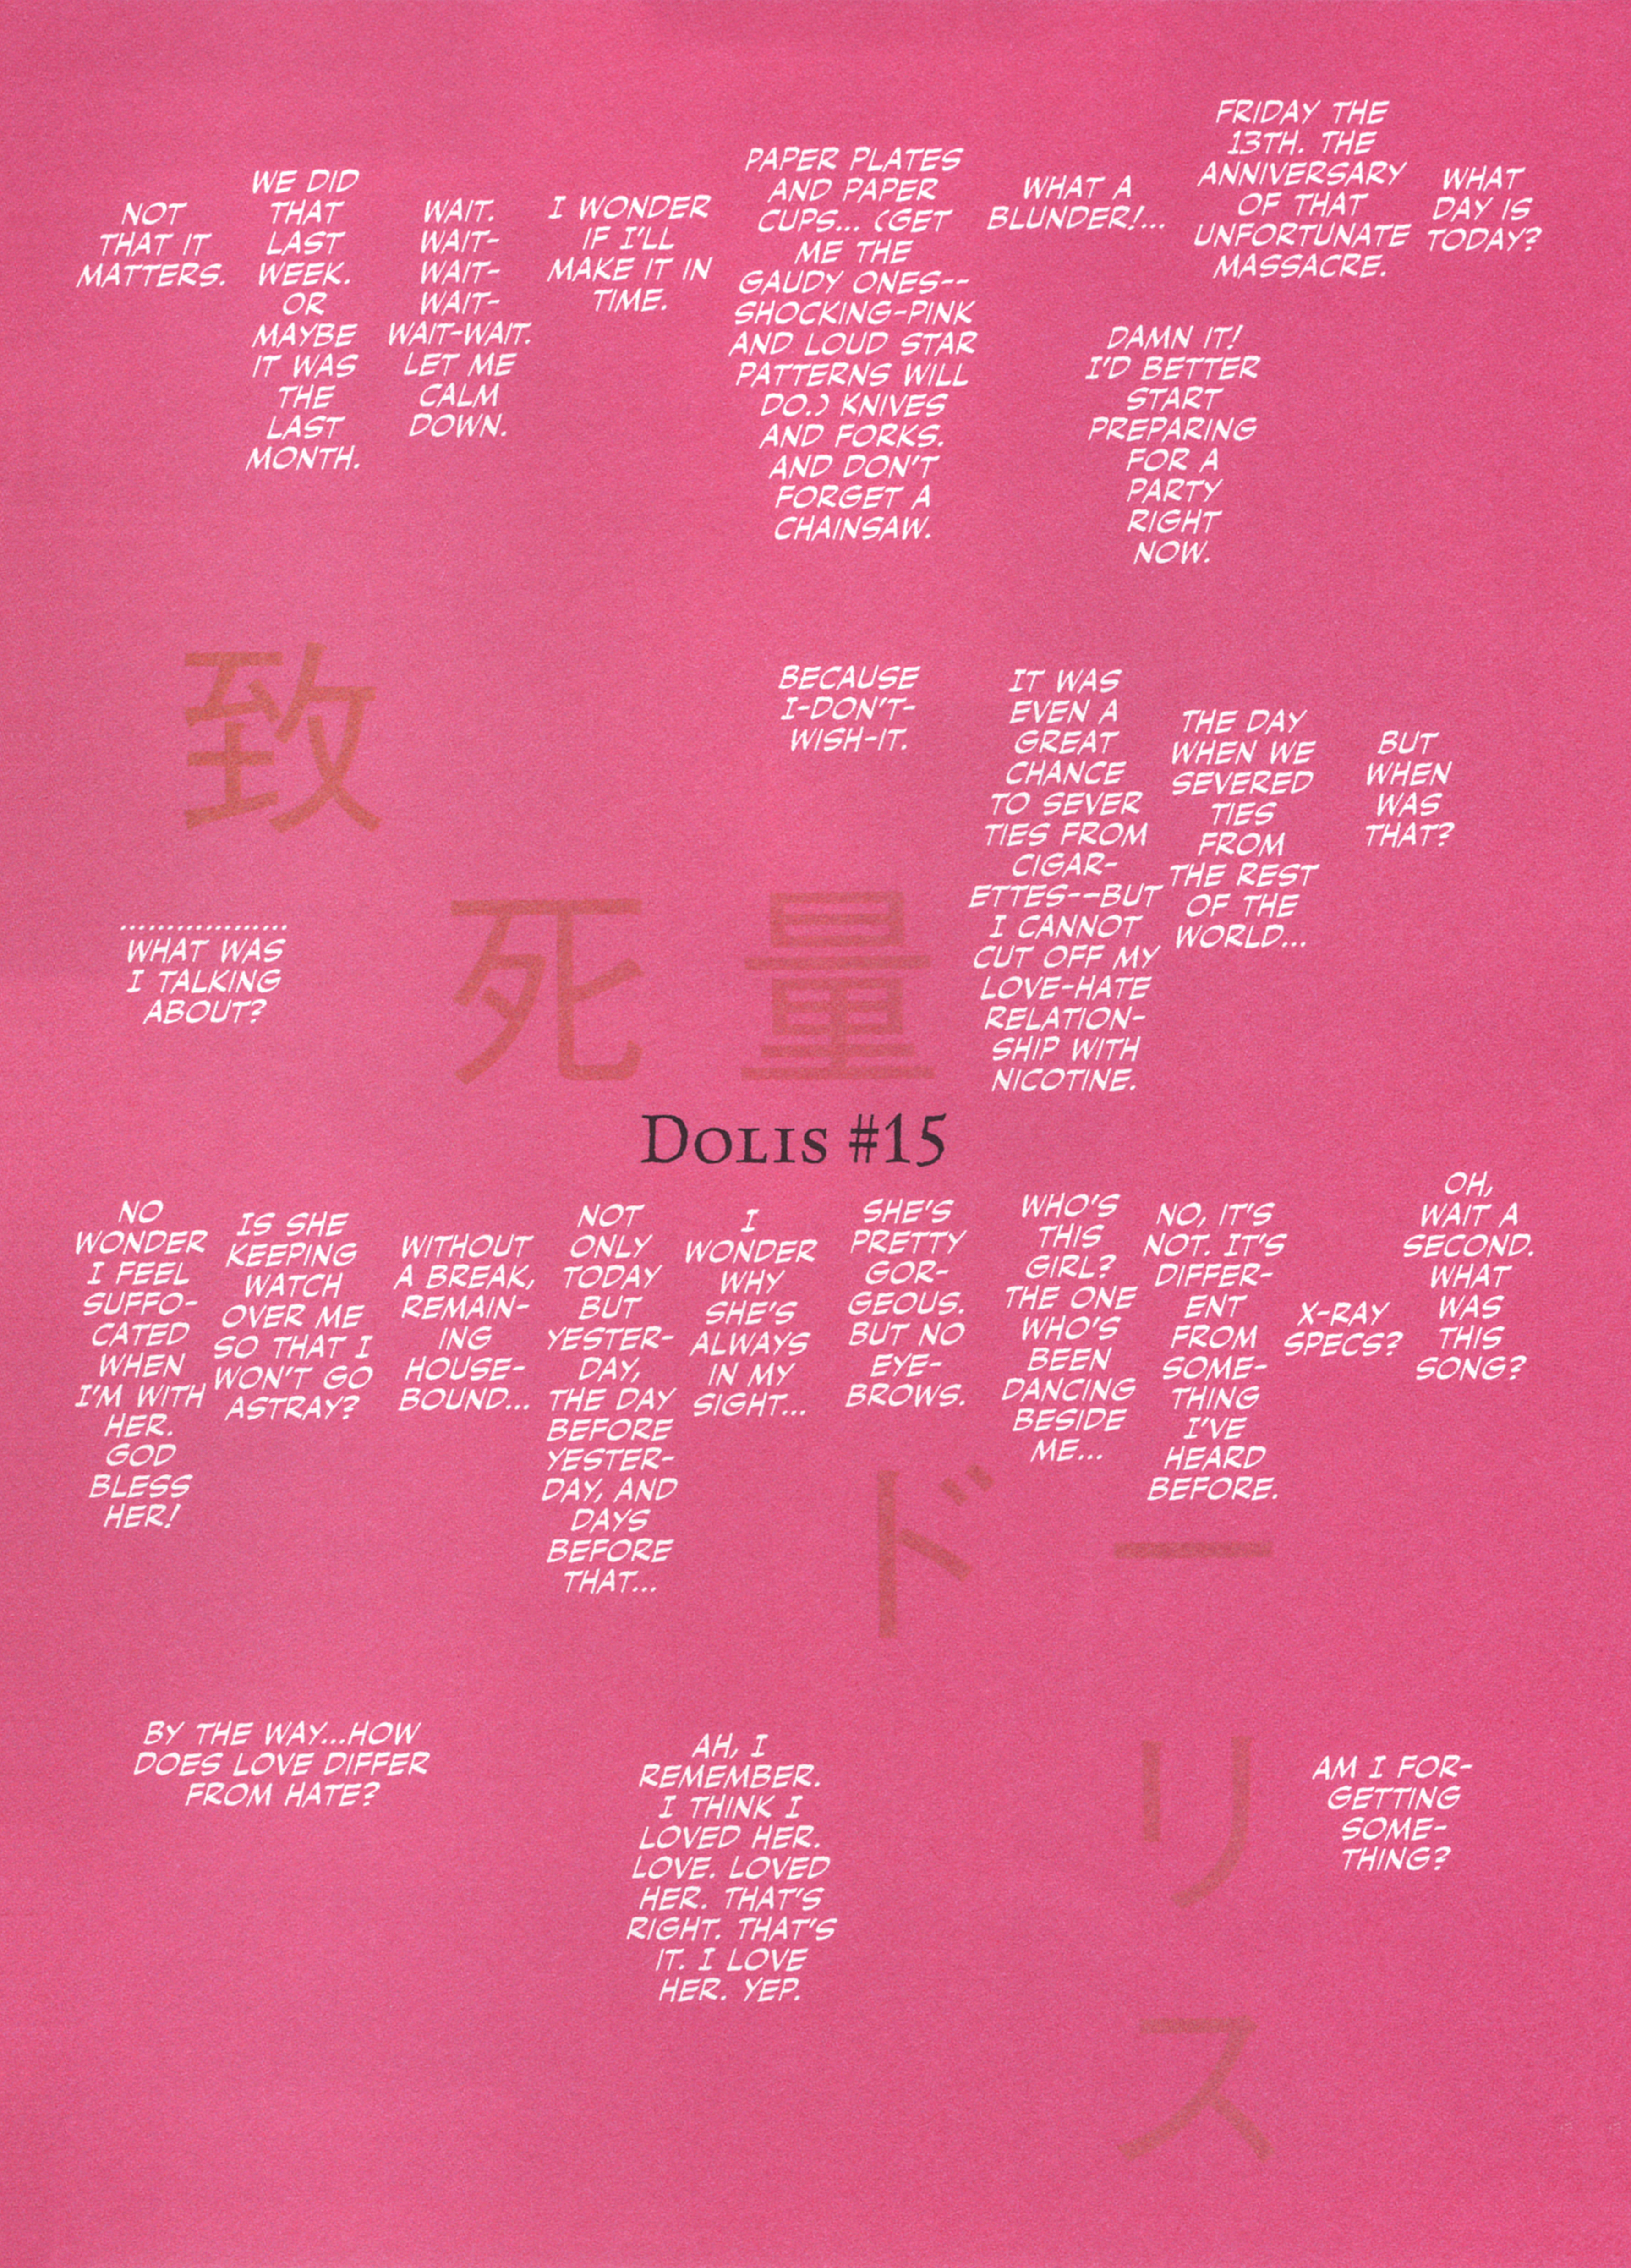 WHAT
DAY IS
TODAY?
FRIDAY THE
13TH. THE
ANNIVERSARY
OF THAT
UNFORTUNATE
MASSACRE.
DAMN IT!
I'D BETTER
START
PREPARING
FOR A
PARTY
RIGHT
NOW.
WHAT A
BLUNDER!...
PAPER PLATES
AND PAPER
CUPS... (GET
ME THE
GAUDY ONES--
SHOCKING-PINK
AND LOUD STAR
PATTERNS WILL
DO.) KNIVES
AND FORKS.
AND DON'T
FORGET A
CHAINSAW.
I WONDER
IF I'LL
MAKE IT IN
TIME.
WAIT.
WAIT-
WAIT-
WAIT-
WAIT-WAIT.
LET ME
CALM
DOWN.
WE DID
THAT
LAST
WEEK.
OR
MAYBE
IT WAS
THE
LAST
MONTH.
NOT
THAT IT
MATTERS.
BUT
WHEN
WAS
THAT?
THE DAY
WHEN WE
SEVERED
TIES
FROM
THE REST
OF THE
WORLD...
IT WAS
EVEN A
GREAT
CHANCE
TO SEVER
TIES FROM
CIGAR-
ETTES--BUT
I CANNOT
CUT OFF MY
LOVE-HATE
RELATION-
SHIP WITH
NICOTINE.
BECAUSE
I-DON'T-
WISH-IT.
致
死量
..................
WHAT WAS
I TALKING
ABOUT?
DOLIS #15
OH,
WAIT A
SECOND.
WHAT
WAS
THIS
SONG?
X-RAY
SPECS?
NO, IT'S
NOT. IT'S
DIFFER-
ENT
FROM
SOME-
THING
I'VE
HEARD
BEFORE.
WHO'S
THIS
GIRL?
THE ONE
WHO'S
BEEN
DANCING
BESIDE
ME...
SHE'S
PRETTY
GOR-
GEOUS.
BUT NO
EYE-
BROWS.
I
WONDER
WHY
SHE'S
ALWAYS
IN MY
SIGHT...
NOT
ONLY
TODAY
BUT
YESTER-
DAY,
THE DAY
BEFORE
YESTER-
DAY, AND
DAYS
BEFORE
THAT...
WITHOUT
A BREAK,
REMAIN-
ING
HOUSE-
BOUND...
IS SHE
KEEPING
WATCH
OVER ME
SO THAT I
WON'T GO
ASTRAY?
NO
WONDER
I FEEL
SUFFO-
CATED
WHEN
I'M WITH
HER.
GOD
BLESS
HER!
ドー
リ
ス
AM I FOR-
GETTING
SOME-
THING?
AH, I
REMEMBER.
I THINK I
LOVED HER.
LOVE. LOVED
HER. THAT'S
RIGHT. THAT'S
IT. I LOVE
HER. YEP.
BY THE WAY...HOW
DOES LOVE DIFFER
FROM HATE?